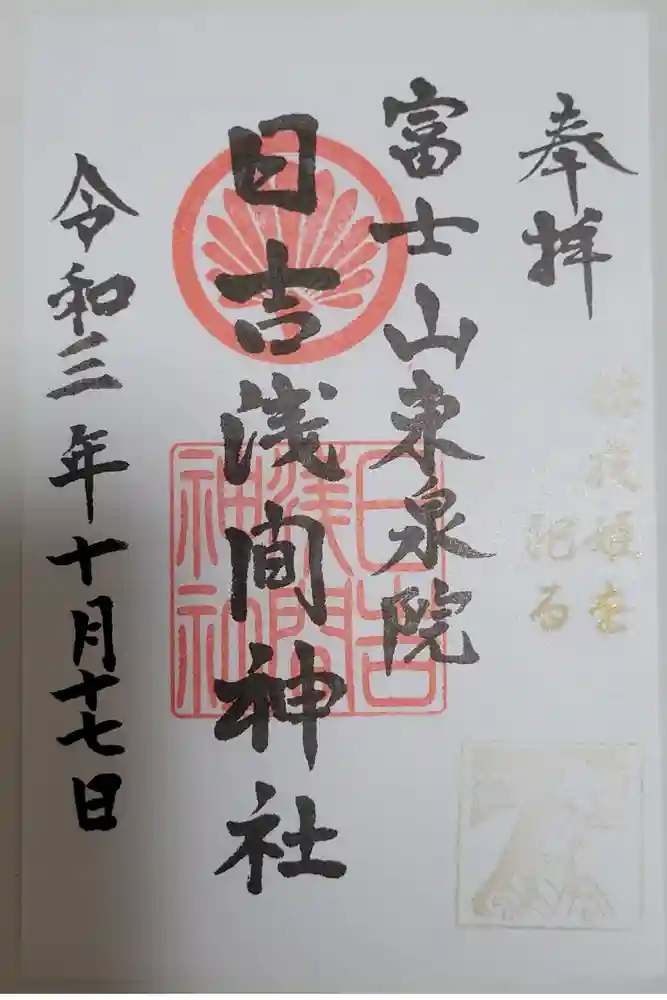 奉拝
富士山東泉院
日吉浅間神社
日吉
浅間
神社
令和三年十月十七日